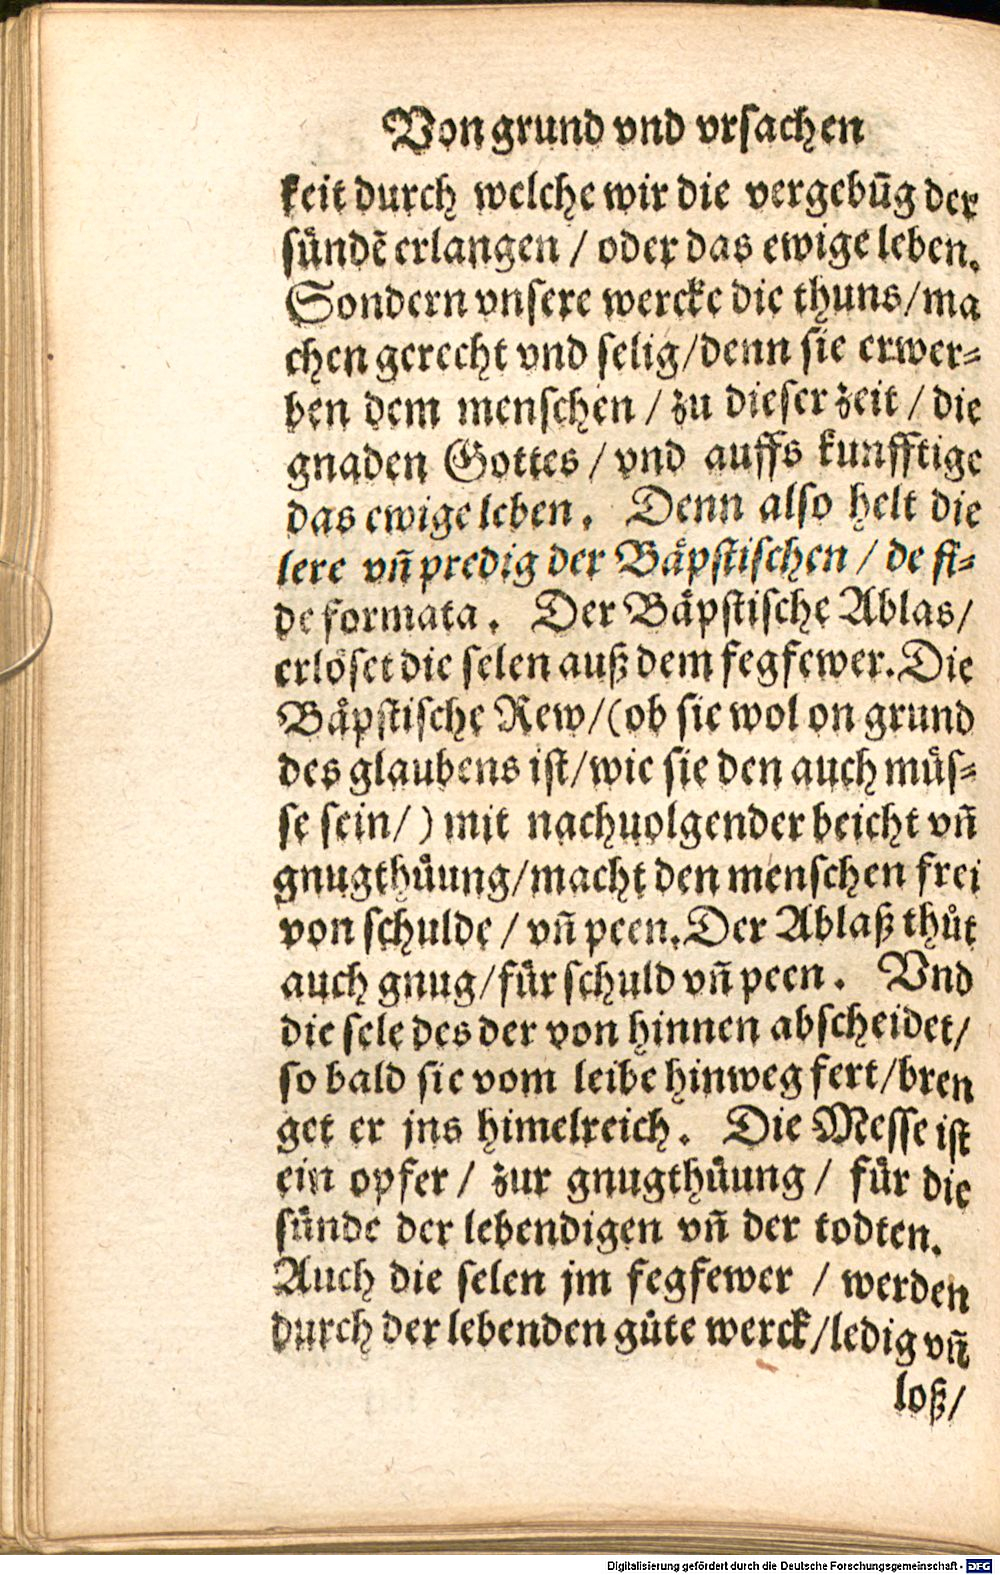 Von grund vnd vrsachen
keit durch welche wir die vergebūg der
sündē erlangen / oder das ewige leben.
Sondern vnsere wercke die thuns/ma
chen gerecht vnd selig/denn sie erwer-
ben dem menschen / zu dieser zeit / die
gnaden Gottes / vnd auffs kunfftige
das ewige leben. Denn also helt die
lere vñ predig der Bäpstischen / de fi-
de formata. Der Bäpstische Ablas/
erlöset die selen auß dem fegfewer. Die
Bäpstische Rew/(ob sie wol on grund
des glaubens ist/wie sie den auch müs-
se sein/) mit nachuolgender beicht vñ
gnugthüung/macht den menschen frei
von schulde / vñ peen. Der Ablaß thůt
auch gnug/für schuld vñ peen. Vnd
die sele des der von hinnen abscheidet/
so bald sie vom leibe hinweg fert/bren
get er jns himelreich. Die Messe ist
ein opfer / zur gnugthüung / für die
sünde der lebendigen vñ der todten.
Auch die selen jm fegfewer / werden
durch der lebenden gůte werck/ledig vñ
loß/
Digitalisierung gefördert durch die Deutsche Forschungsgemeinschaft - DFG